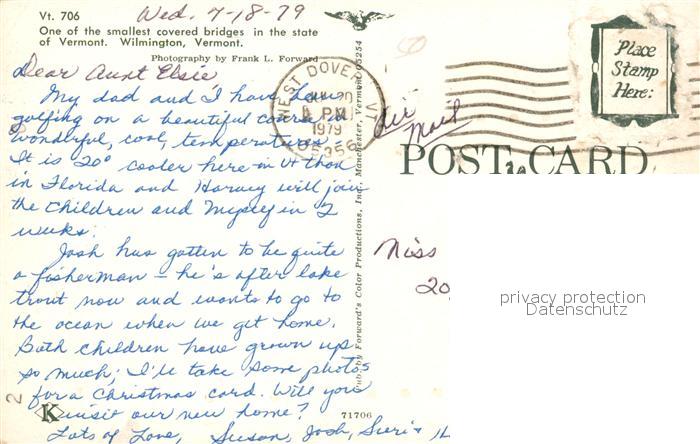 Vt. 706
Wed. 7-18-79
One of the smallest covered bridges in the state
of Vermont. Wilmington, Vermont.
Photography by Frank L. Forward
Dear Aunt Elsie
My dad and I have been
golfing on a beautiful course in
wonderful, cool, temperatures.
It is 20° cooler here in Vt than
in Florida and Harvey will join
the children and myself in 2
weeks.
Josh has gotten to be quite
a fisherman — he's after lake
trout now and wants to go to
the ocean when we get home.
Both children have grown up
so much; I'll take some photos
for a Christmas card. Will you
visit our new home?
Lots of Love, Susan, Josh,
K
71706
2
Pub. by Forward's Color Productions, Inc., Manchester, Vermont 05254
WEST DOVER, VT
PM
1979
05356
Air
Mail
Place
Stamp
Here:
POST CARD
Miss
20
privacy protection
Datenschutz